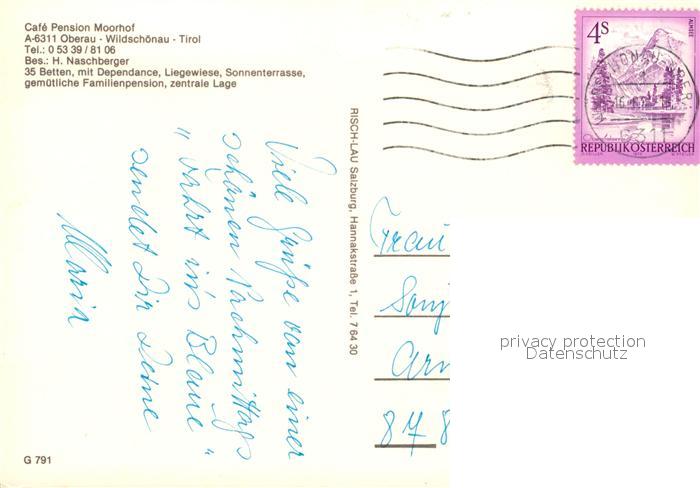 Café Pension Moorhof
A-6311 Oberau - Wildschönau - Tirol
Tel.: 0 53 39 / 81 06
Bes.: H. Naschberger
35 Betten, mit Dependance, Liegewiese, Sonnenterrasse,
gemütliche Familienpension, zentrale Lage
Viele Grüße von einer
schönen Nachmittags
"Fahrt ins Blaue"
sendet Dir Deine
Maria
G 791
RISCH-LAU Salzburg, Hannakstraße 1, Tel. 7 64 30
4S
ALMSEE
REPUBLIK ÖSTERREICH
6311
Frau
Sonj
Arn
87 8
privacy protection
Datenschutz